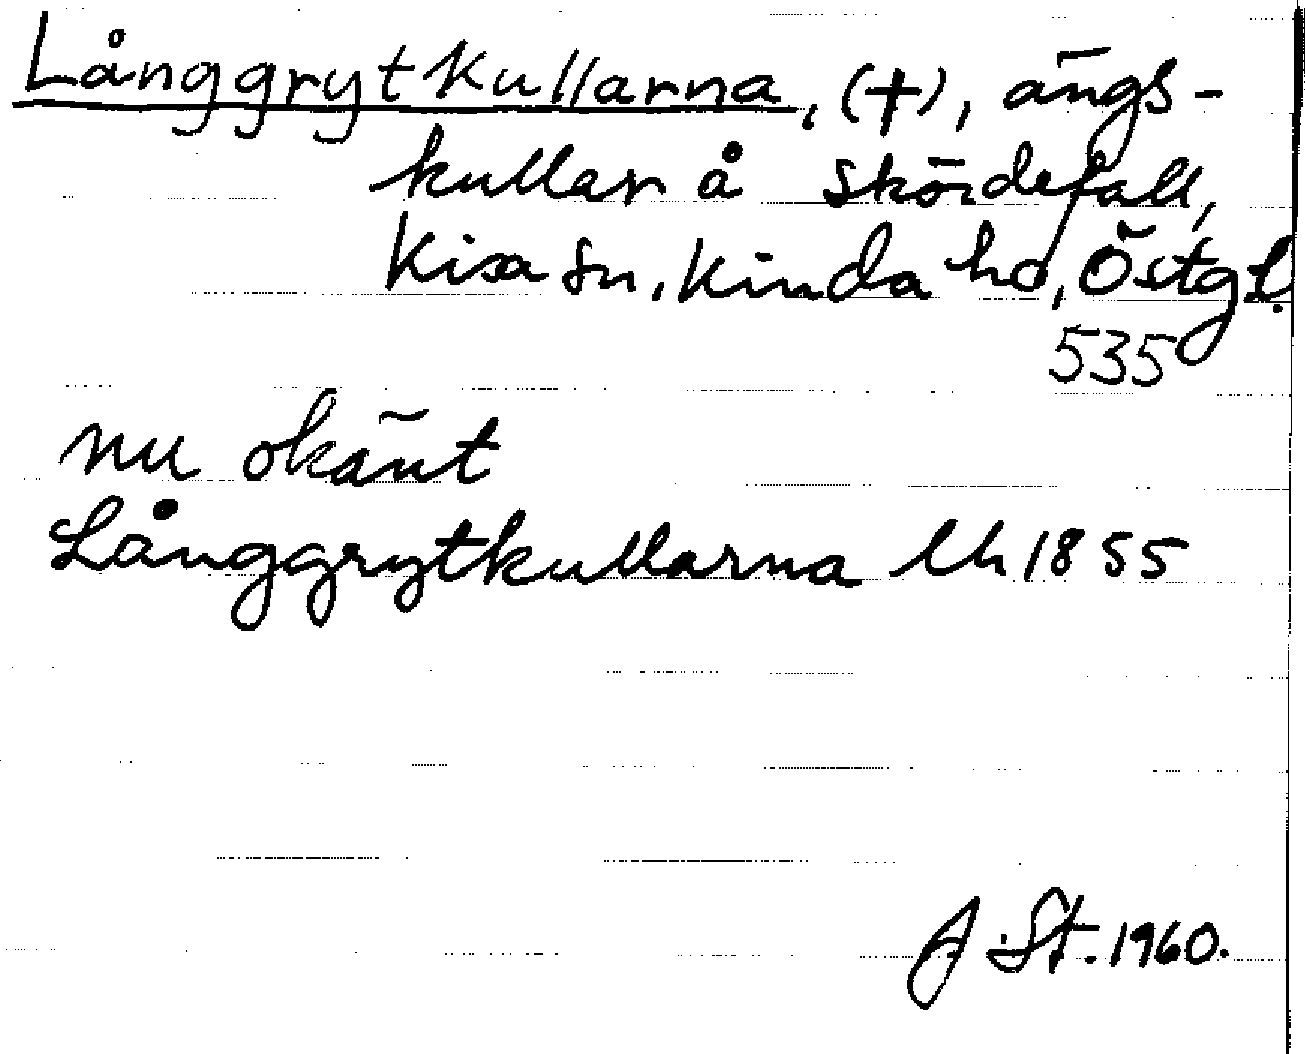 Långgrytkullarna, (†), ängs-
kullar å Skördefall,
Kisa sn, Kinda hd, Östgl.
535
nu okänt
Långgrytkullarna Lh 1855
J. St. 1960.